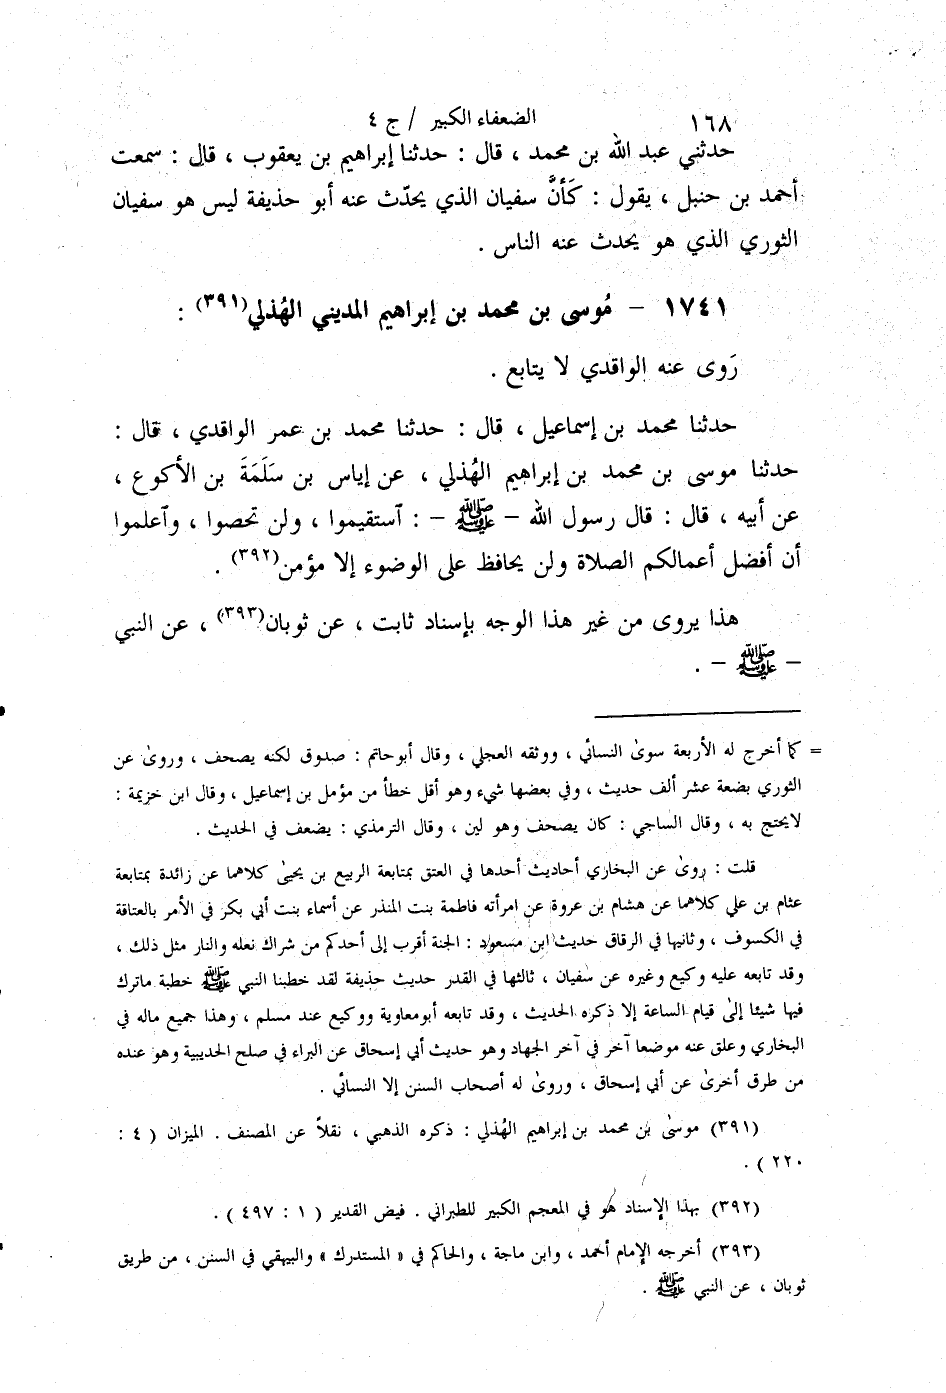 ١٦٨ الضعفاء الكبير / ج ٤
حدثني عبد الله بن محمد ، قال : حدثنا إبراهيم بن يعقوب ، قال : سمعت
أحمد بن حنبل ، يقول : كَأنَّ سفيان الذي يحدّث عنه أبو حذيفة ليس هو سفيان
الثوري الذي هو يحدث عنه الناس .
١٧٤١ – مُوسى بن محمد بن إبراهيم المديني الهُذلي(٣٩١) :
رَوى عنه الواقدي لا يتابع .
حدثنا محمد بن إسماعيل ، قال : حدثنا محمد بن عمر الواقدي ، قال :
حدثنا موسى بن محمد بن إبراهيم الهُذلي ، عن إياس بن سَلَمَةَ بن الأكوع ،
عن أبيه ، قال : قال رسول الله – ﷺ – : ٱستقيموا ، ولن تحصوا ، وٱعلموا
أن أفضل أعمالكم الصلاة ولن يحافظ على الوضوء إلا مؤمن(٣٩٢) .
هذا يروى من غير هذا الوجه بإسناد ثابت ، عن ثوبان(٣٩٣) ، عن النبي
– ﷺ – .
= كما أخرج له الأربعة سوىٰ النسائي ، ووثقه العجلي ، وقال أبوحاتم : صدوق لكنه يصحف ، وروىٰ عن
الثوري بضعة عشر ألف حديث ، وفي بعضها شيء وهو أقل خطأ من مؤمل بن إسماعيل ، وقال ابن خزيمة :
لايحتج به ، وقال الساجي : كان يصحف وهو لين ، وقال الترمذي : يضعف في الحديث .
قلت : روىٰ عن البخاري أحاديث أحدها في العتق بمتابعة الربيع بن يحيىٰ كلاهما عن زائدة بمتابعة
عثام بن علي كلاهما عن هشام بن عروة عن امرأته فاطمة بنت المنذر عن أسماء بنت أبي بكر في الأمر بالعتاقة
في الكسوف ، وثانيها في الرقاق حديث ابن مسعود : الجنة أقرب إلى أحدكم من شراك نعله والنار مثل ذلك ،
وقد تابعه عليه وكيع وغيره عن سفيان ، ثالثها في القدر حديث حذيفة لقد خطبنا النبي ﷺ خطبة ماترك
فيها شيئا إلىٰ قيام الساعة إلا ذكره الحديث ، وقد تابعه أبومعاوية ووكيع عند مسلم ، وهذا جميع ماله في
البخاري وعلق عنه موضعا آخر في آخر الجهاد وهو حديث أبي إسحاق عن البراء في صلح الحديبية وهو عنده
من طرق أخرىٰ عن أبي إسحاق ، وروىٰ له أصحاب السنن إلا النسائي .
(٣٩١) موسىٰ بن محمد بن إبراهيم الهُذلي : ذكره الذهبي ، نقلاً عن المصنف . الميزان ( ٤ :
٢٢٠ ) .
(٣٩٢) بهذا الإسناد هو في المعجم الكبير للطبراني . فيض القدير ( ١ : ٤٩٧ ) .
(٣٩٣) أخرجه الإمام أحمد ، وابن ماجة ، والحاكم في « المستدرك » والبيهقي في السنن ، من طريق
ثوبان ، عن النبي ﷺ .